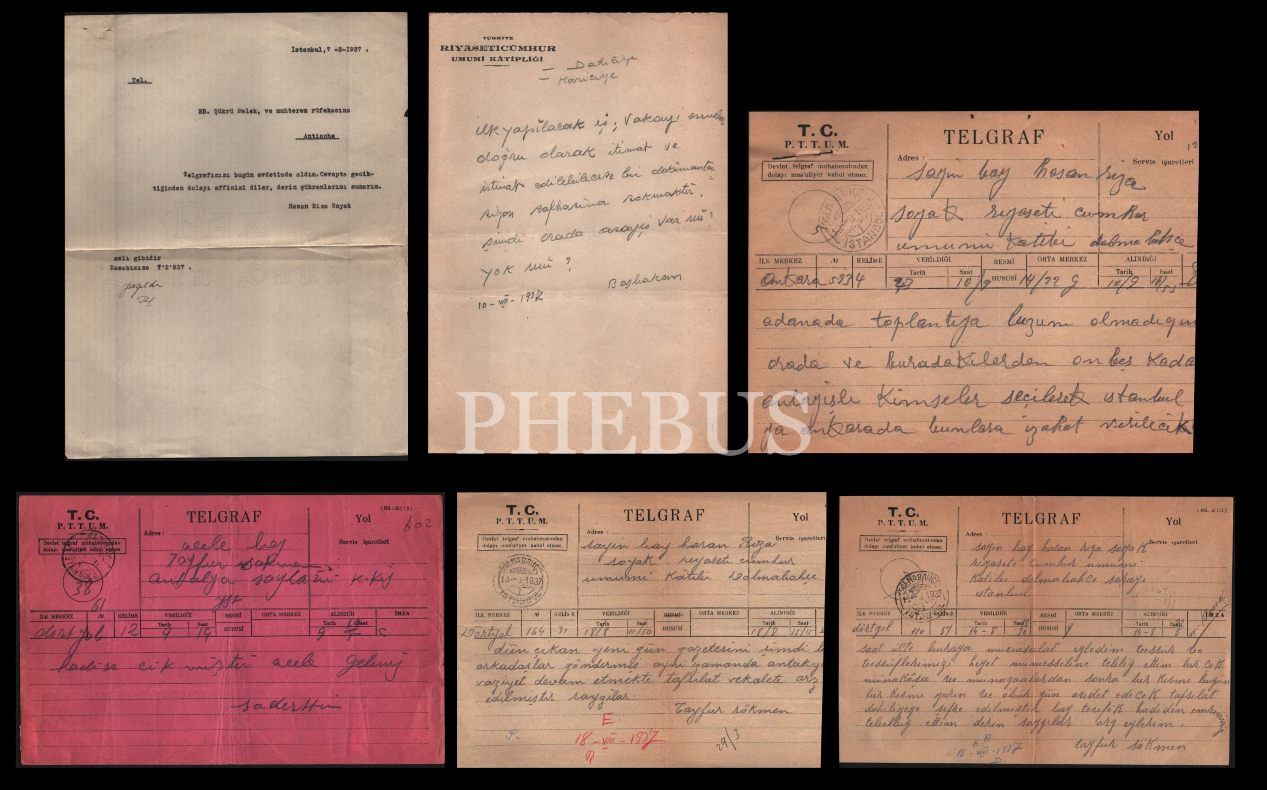 İstanbul,7 -2-1937 .
Tel.
BB. Şükrü Melek, ve muhterem rüfekasına
Antioche
Telgrafınızı bugün avdetinde aldım.Cevapta gecik-
tiğinden dolayı affinizi diler, derin şükranlarımı sunarım.
Hasan Rıza Soyak
aslı gibidir
7'2'937 .
yazıldı
TÜRKİYE
RİYASETİCÜMHUR
UMUMİ KATİPLİĞİ
- Dahiliye
- Hariciye
ilk yapılacak iş; Vakayi
doğru olarak itimat ve
istinat edilebilecek bir
safhasına sokmaktır.
Şimdi orada asayiş var mı?
yok mu?
Başbakan
10-VIII-1937
T. C.
P. T. T. U. M.
Devlet telgraf muhaberatından
dolayı mes'uliyet kabul etmez.
TELGRAF
Yol
Adres :
Servis işaretleri
sayin bay hasan rıza
soyak riyaseti cumhur
umumi katibi dolmabahçe
İLK MERKEZ № KELİME VERİLDİĞİ Tarih Saat RESMİ HUSUSİ ORTA MERKEZ ALINDIĞI Tarih Saat
ankara 5234 14/22 10/9
adanada toplantıya luzum olmadıgın
orada ve buradakilerden on beş kada
anlayışlı kimseler seçilerek ıstanbul
ya ankarada bunlara izahat verilecik
T. C.
P. T. T. U. M.
Devlet telgraf muhaberatından
dolayı mes'uliyet kabul etmez
TELGRAF
Yol
602
Adres :
Servis işaretleri
acele bay
Tayfur sökmen
antalya saylavi
İLK MERKEZ № KELİME VERİLDİĞİ Tarih Saat RESMİ HUSUSİ ORTA MERKEZ ALINDIĞI Tarih Saat İMZA
dörtyol 12 9 19 9
hadise cik mıştır acele geliniz
sadettin
T. C.
P. T. T. U. M.
Devlet telgraf muhaberatından
dolayı mes'uliyet kabul etmez.
TELGRAF
Yol
Adres :
Servis işaretleri
sayin bay hasan Rıza
soyak riyaseti cumhur
umumi Katibi Dolmabahce
İLK MERKEZ № KELİME VERİLDİĞİ Tarih Saat RESMİ HUSUSİ ORTA MERKEZ ALINDIĞI Tarih Saat
Dörtyol 164 31 18/8 11/50 18/8
dün cıkan yeni gün gazetesini şimdi
arkadaşlar göndermış ayni zamanda antakya
vaziyet devam etmekte tafsilat vekalete arz
edilmiştir saygılar.
Tayfur sökmen
18-VIII-1937
29/3
T. C.
P. T. T. U. M.
Devlet telgraf muhaberatından
dolayı mes'uliyet kabul etmez.
TELGRAF
Yol
Adres :
Servis işaretleri
sayin bay hasan rıza soyak
riyaseti cumhur umumi
katibi dolmabahce sarayı
ıstanbul
İLK MERKEZ № KELİME VERİLDİĞİ Tarih Saat RESMİ HUSUSİ ORTA MERKEZ ALINDIĞI Tarih Saat İMZA
dörtyol 110 57 14-8 14-8
saat ücte buraya muvasalat eyledim
heyet mümessiline teblig ettim bir cok
münakaşa ve munazaalardan sonra bir kısmı bugün
bir kısmı yarın ve öbür gün avdet edecek tafsilat
dahiliyeye şifre edilmiştir bay
ettim derin saygılar arz eylerim.
tayfur sökmen
15-VIII-1937
PHEBUS